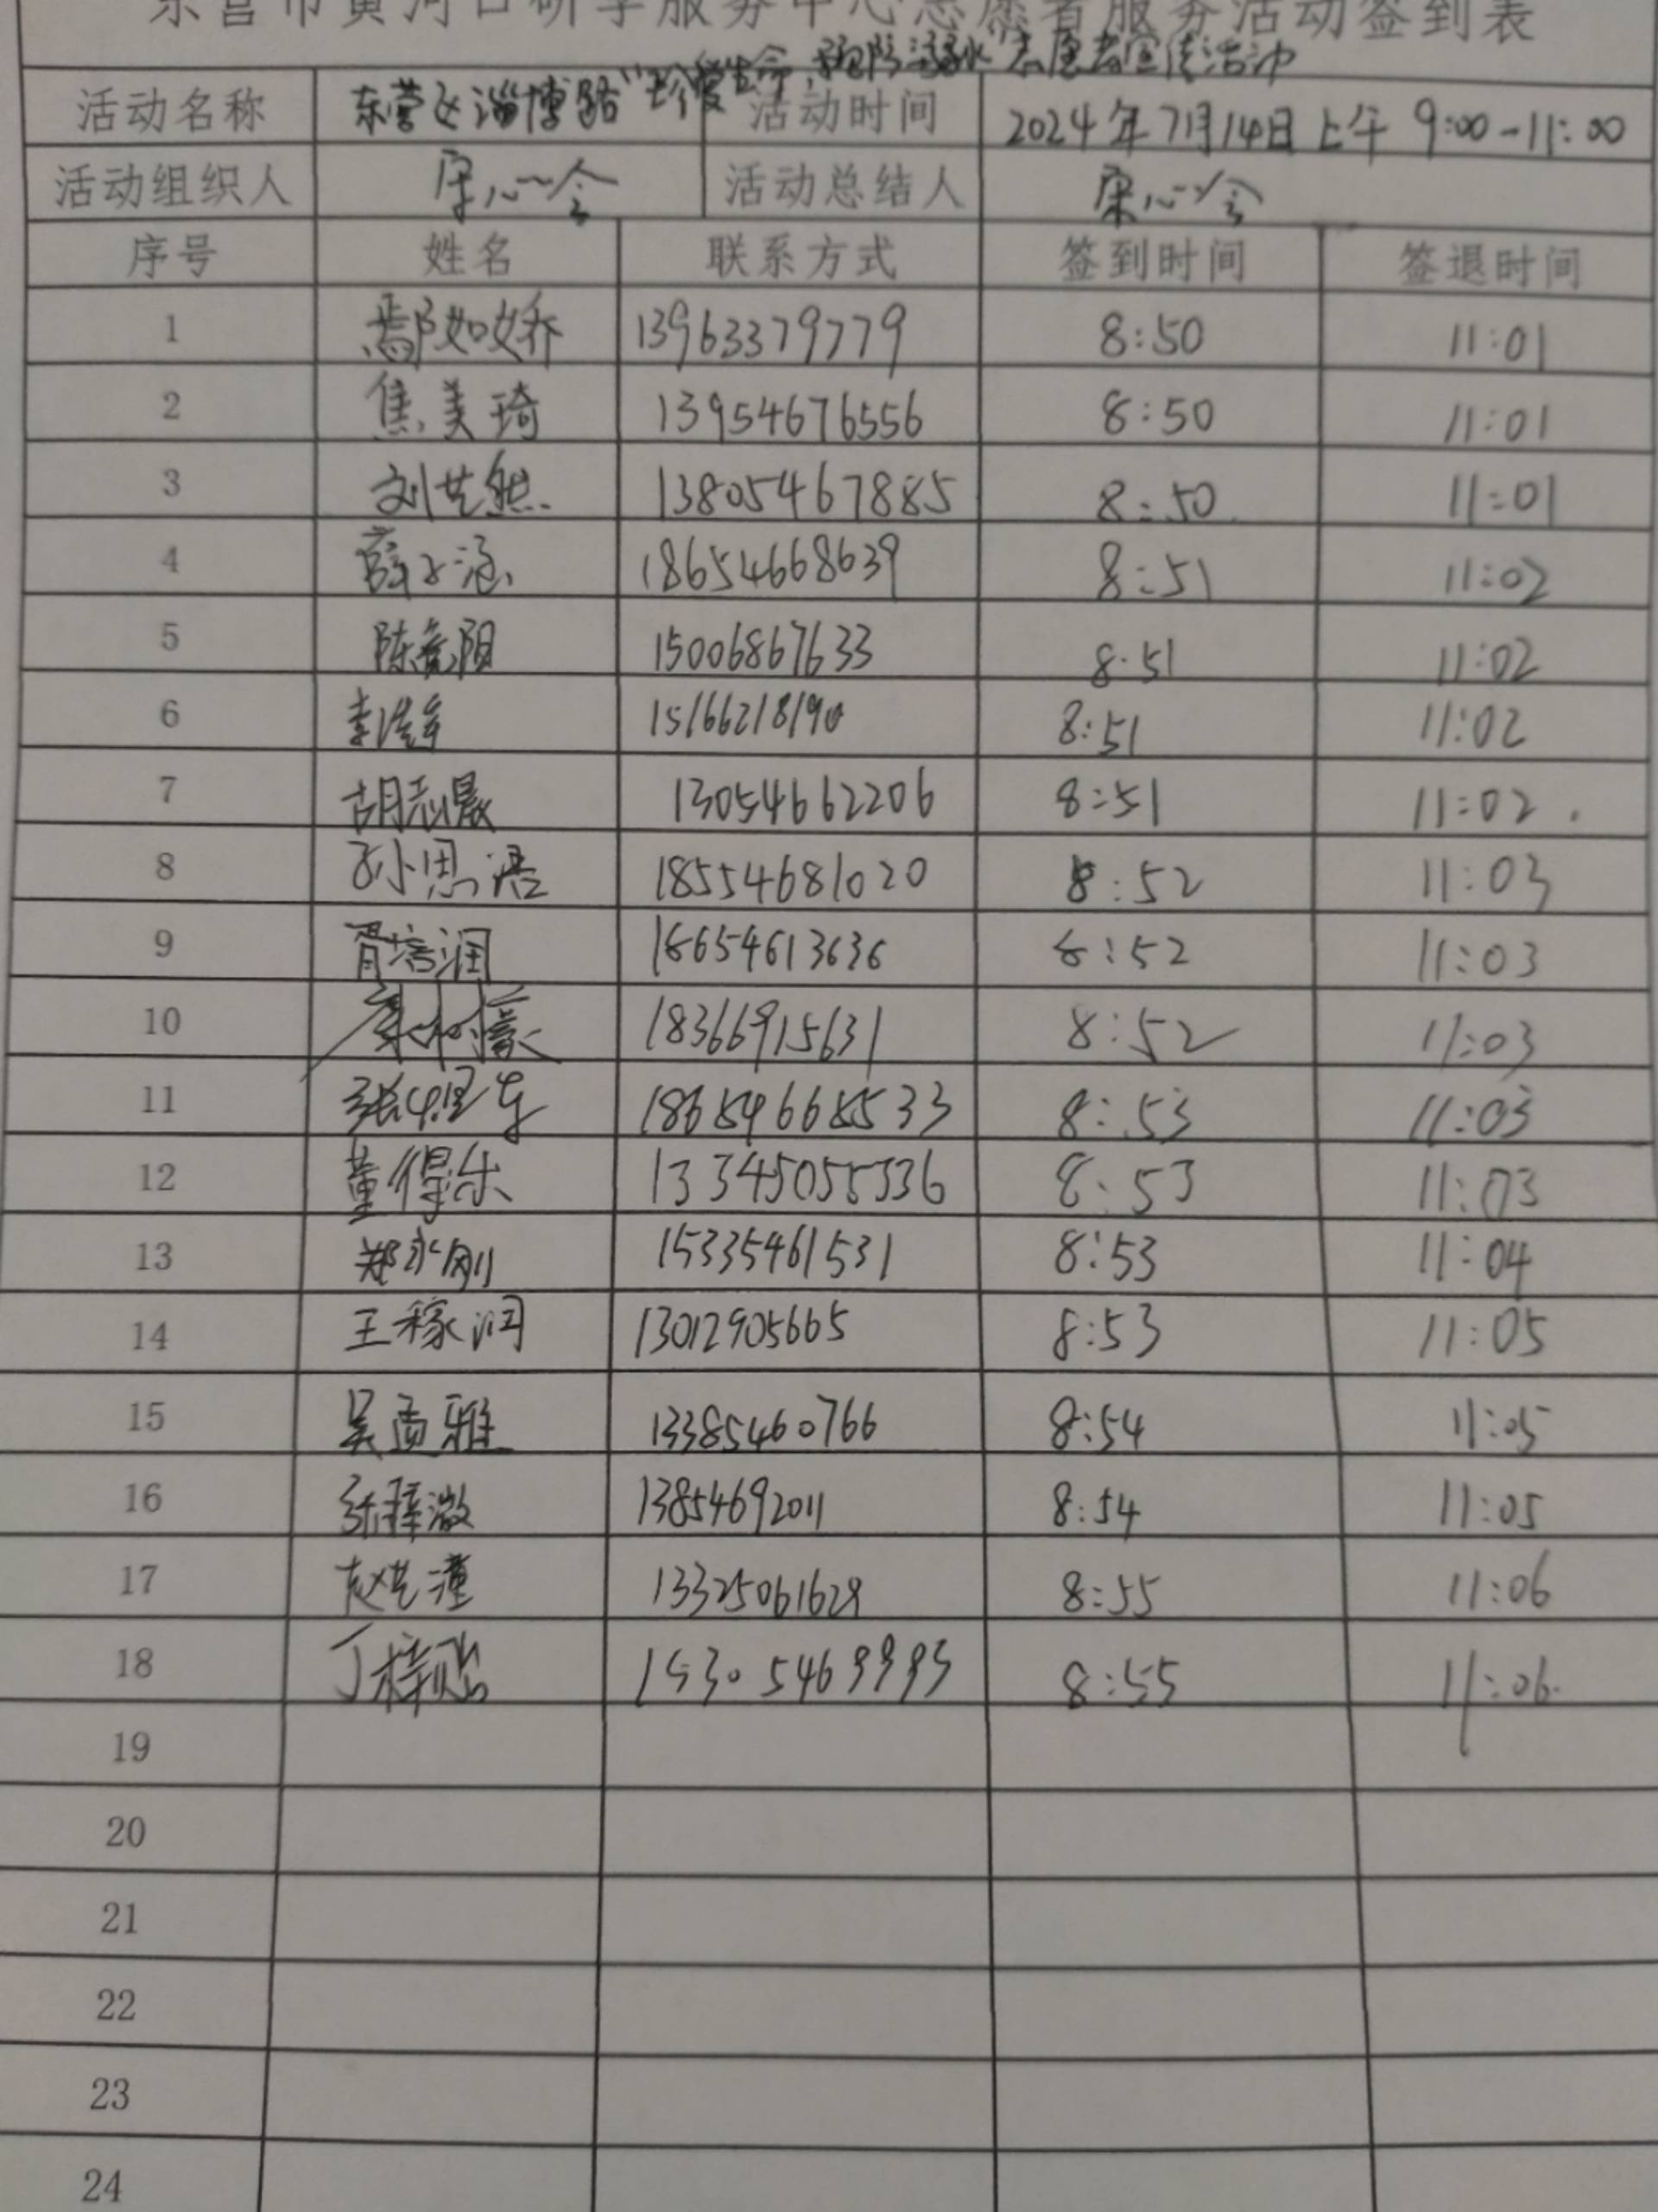 东营市黄河口研学服务中心志愿者服务活动签到表
活动名称 东营区淄博路“珍爱生命,预防溺水”志愿者宣传活动 活动时间 2024年7月14日上午 9:00-11:00
活动组织人 宋心令 活动总结人 宋心令
序号 姓名 联系方式 签到时间 签退时间
1 鄢如娇 13963379779 8:50 11:01
2 焦美琦 13954676556 8:50 11:01
3 刘艺然 13805467885 8:50 11:01
4 薛子涵 18654668639 8:51 11:02
5 陈 阳 15006867633 8:51 11:02
6 李 15166218190 8:51 11:02
7 胡志晟 13054662206 8:51 11:02
8 孙思语 18554681020 8:52 11:03
9 胥培润 18654613636 8:52 11:03
10 18366915631 8:52 11:03
11 张 8:53 11:03
12 董得乐 8:53 11:03
13 郑永刚 15335461531 8:53 11:04
14 王稼润 13012905665 8:53 11:05
15 吴雨雅 13385460766 8:54 11:05
16 张释澈 13854692011 8:54 11:05
17 赵艺潼 13325061628 8:55 11:06
18 丁梓 15305469993 8:55 11:06
19
20
21
22
23
24